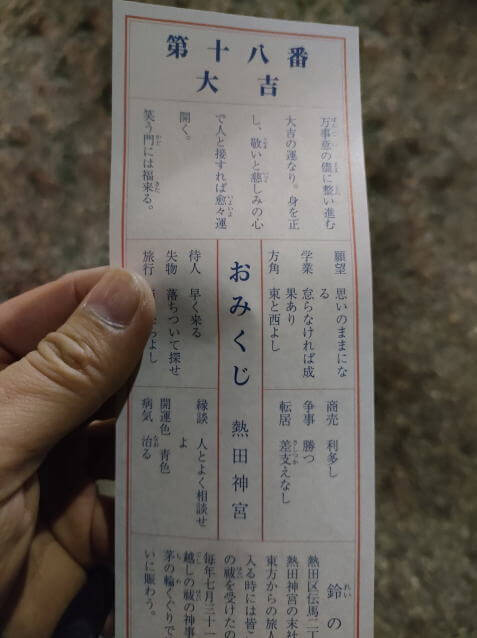 第十八番
大吉
万事意の儘に整い進む
大吉の運なり。身を正
し、敬いと慈しみの心
で人と接すれば愈々運
開く。
笑う門には福来る。
願望 思いのままにな
る
学業 怠らなければ成
果あり
方角 東と西よし
おみくじ 熱田神宮
待人 早く来る
失物 落ちついて探せ
旅行 よし
商売 利多し
争事 勝つ
転居 差支えなし
縁談 人とよく相談せ
よ
開運色 青色
病気 治る
鈴の
熱田区伝馬二丁
熱田神宮の末社
東方からの旅人
入る時には皆こ
の祓を受けたの
毎年七月三十一
越しの祓の神事
茅の輪くぐりで
いに賑わう。